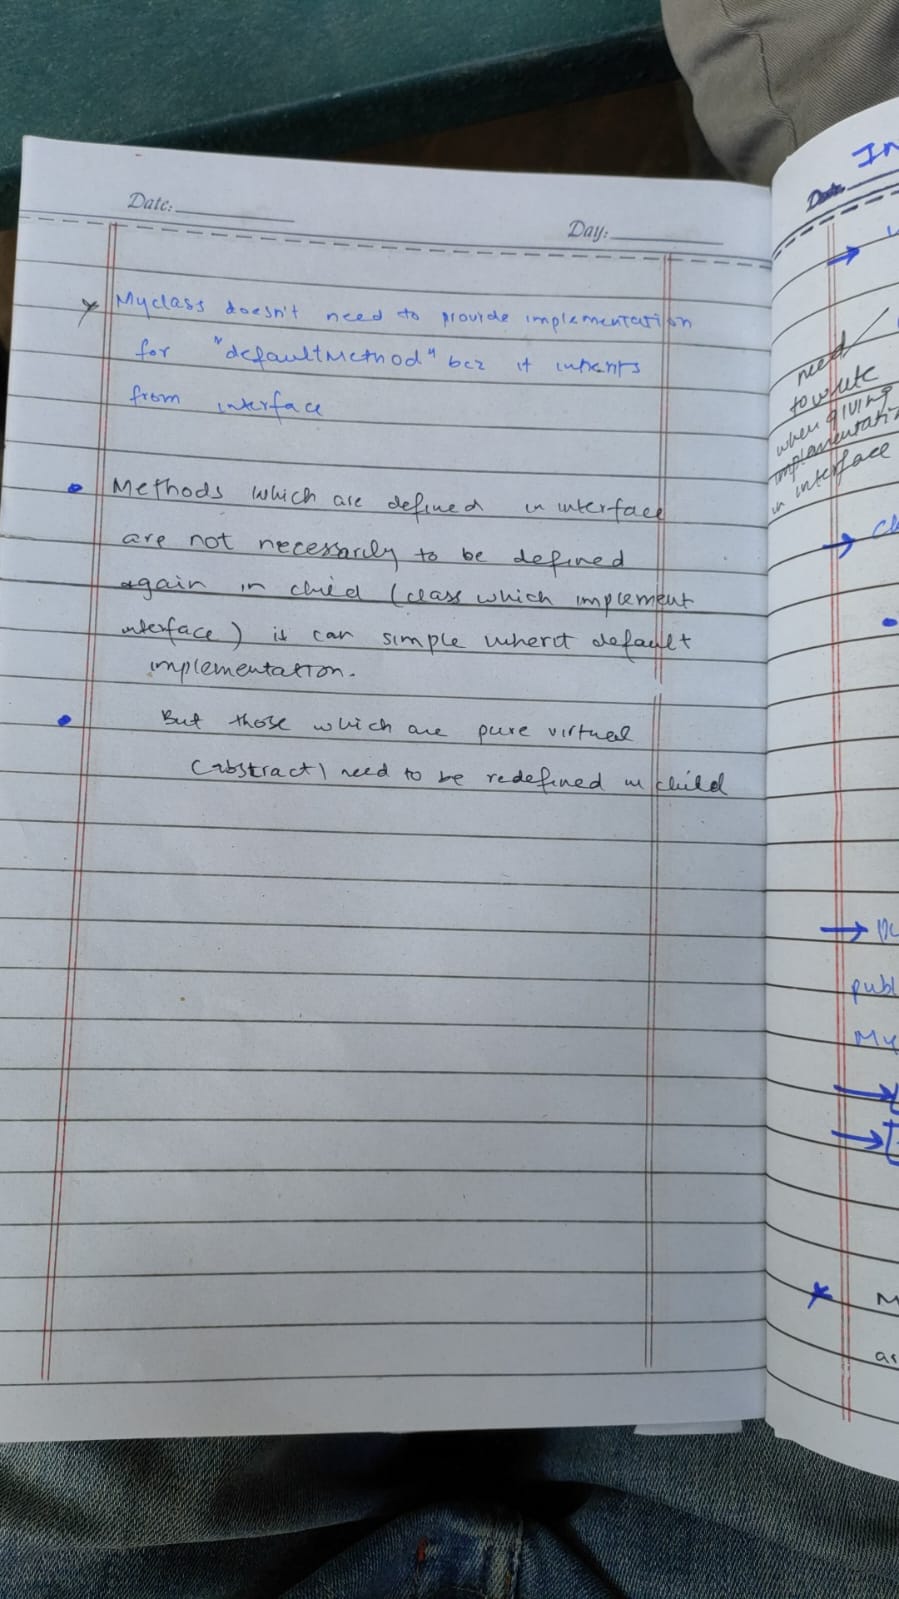 Date:
Day:
Myclass doesn't need to provide implementation
for "defaultMethod" bcz it inherits
from interface
Methods which are defined in interface
are not necessarily to be defined
again in child (class which implement
interface) it can simple inherit default
implementation.
But those which are pure virtual
(abstract) need to be redefined in child
In
Date.
need
to write
when giving
implementatio
in interface
publ
My
M
as